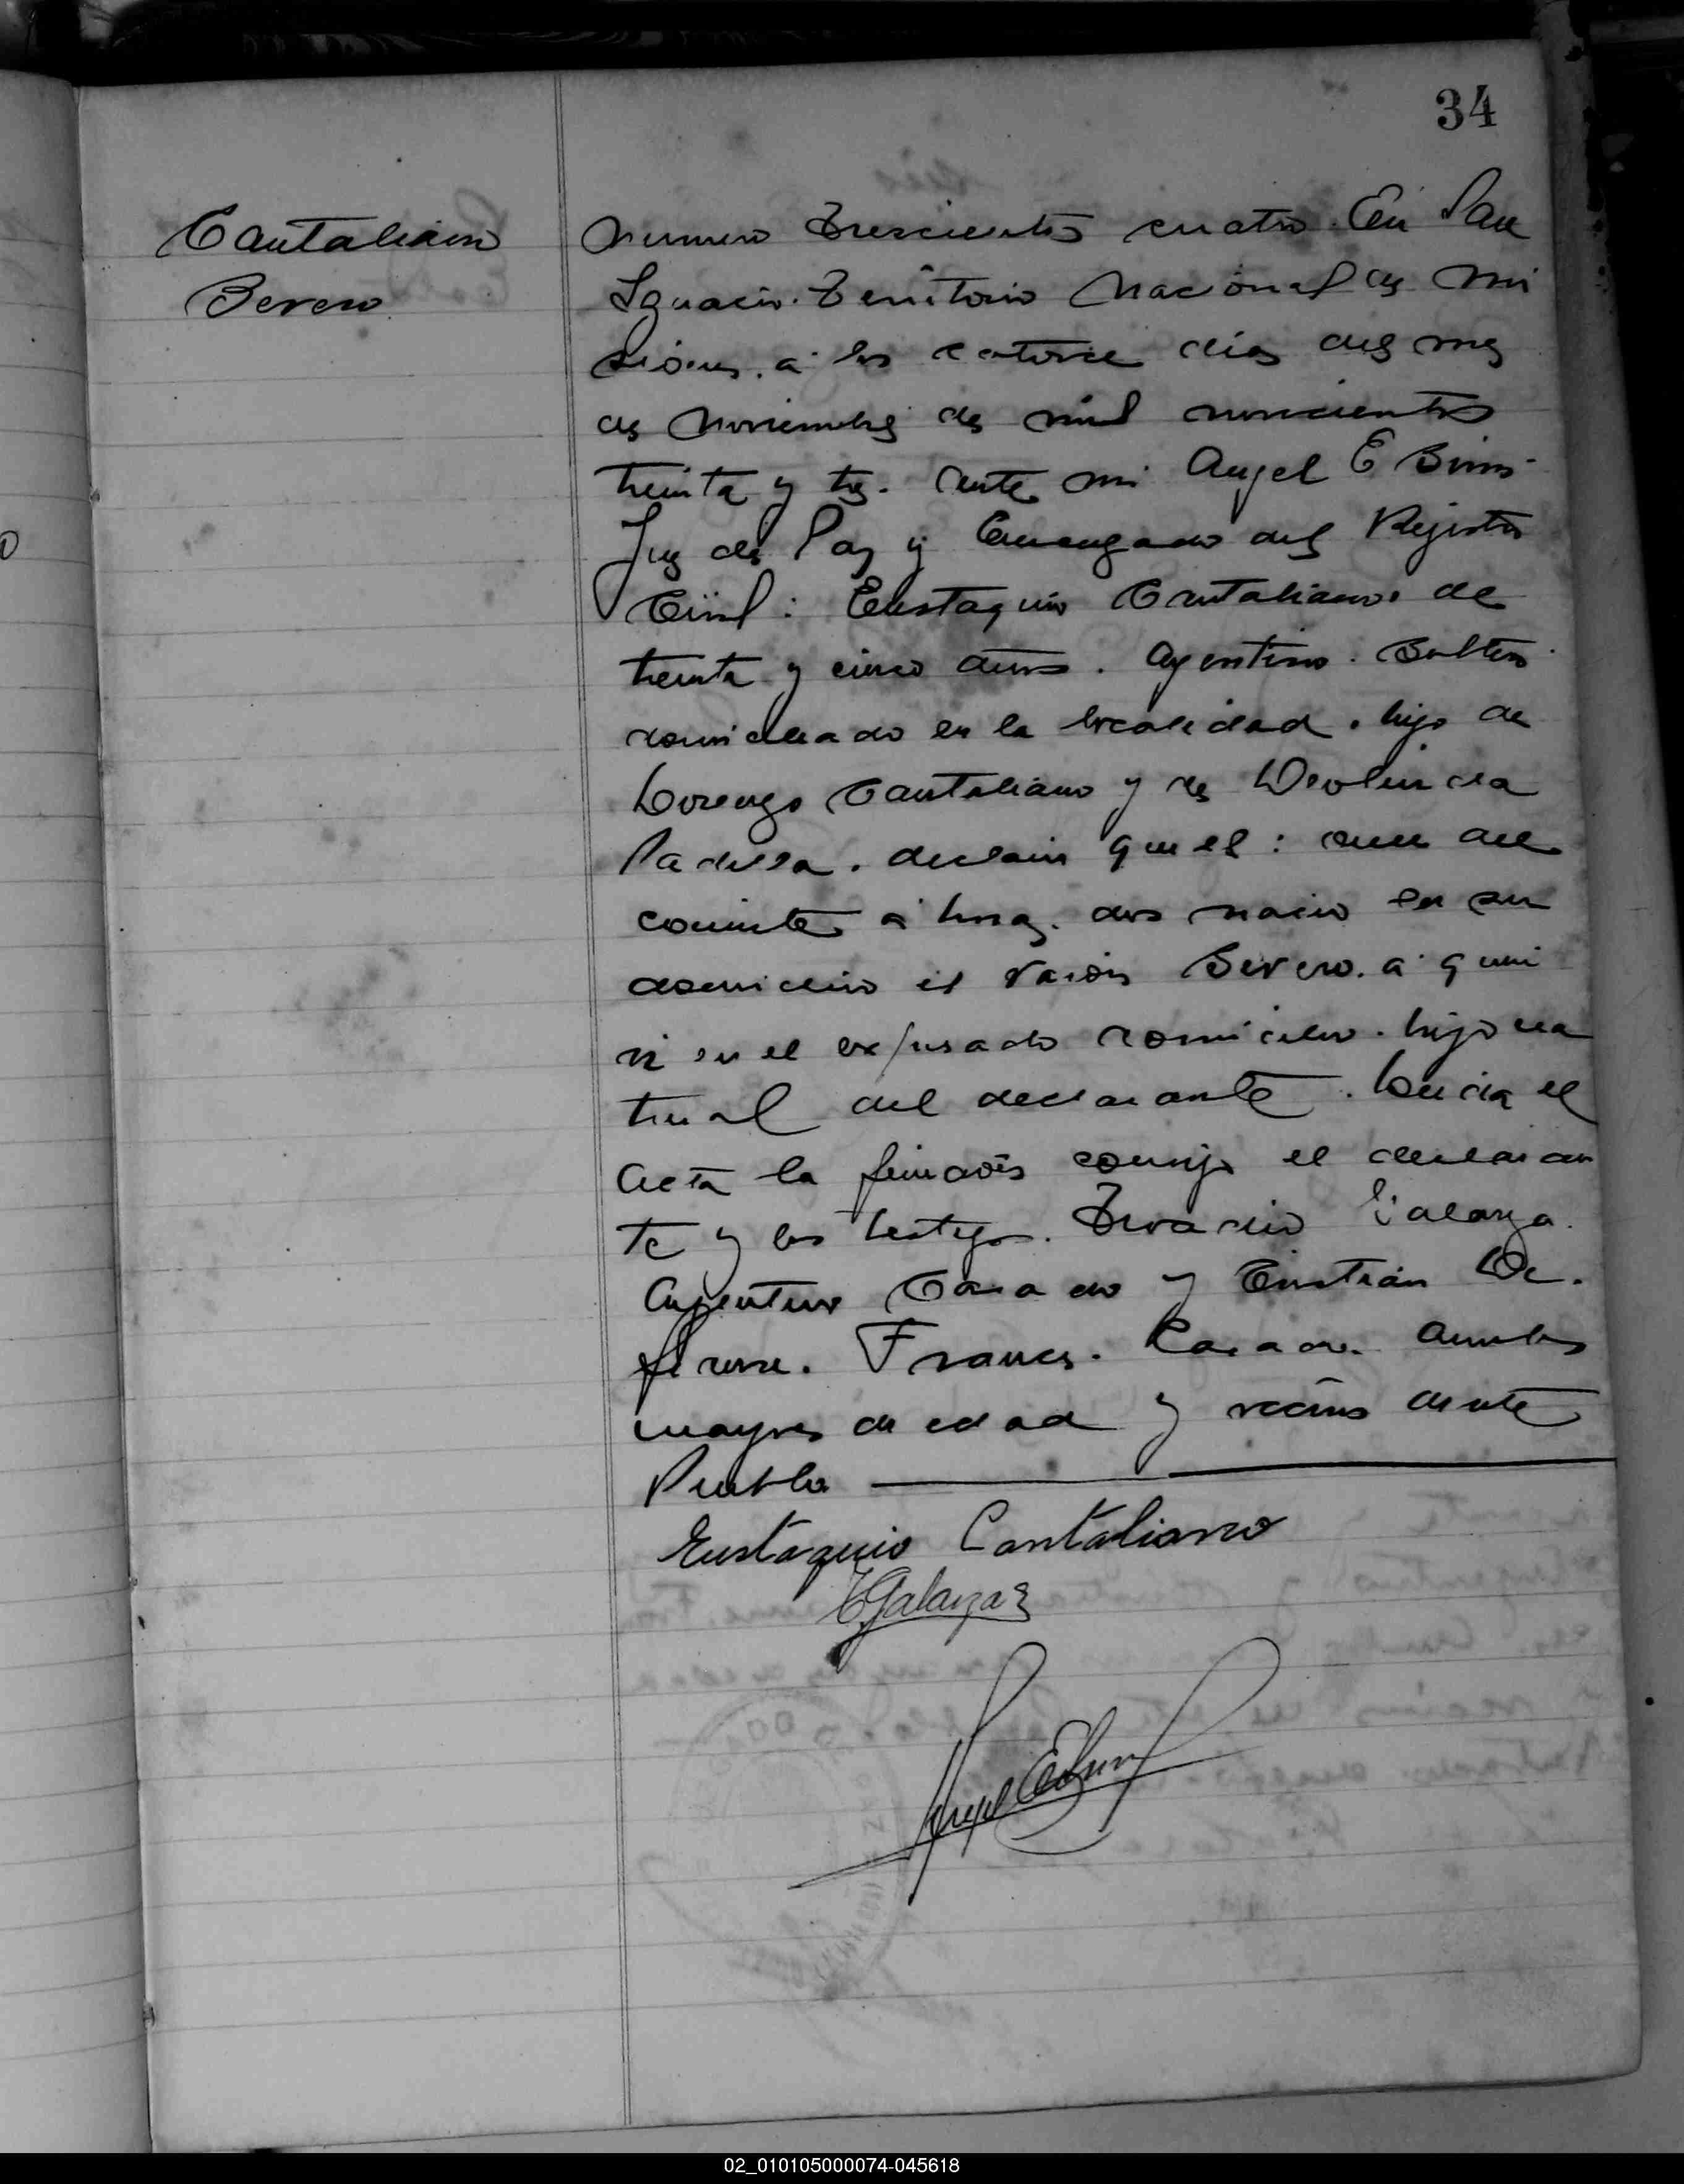 34
Cantaliano
Severo
Numero Trescientos cuatro. En San
Ignacio. Territorio Nacional de Mi
siones, a los catorce dias del mes
de Noviembre de mil novecientos
treinta y tres. Ante mi Angel E
Juez de Paz y Encargado del Registro
Civil: Eustaquio Cantaliano, de
treinta y cinco años. Argentino. Soltero
domiciliado en la localidad, hijo de
Lorenzo Cantaliano y de Deolinda
Padilla. declaró que el: once del
corriente a horas dos nació en su
domicilio el varón Severo. a quien
vi en el expresado domicilio. hijo na
tural del declarante. Leida el
Acta la firmaron conmigo el declaran
te y los testigos. Galarza.
Argentino Casado y Cristián De.
. Frances. Casado. Ambos
mayores de edad y vecinos de este
Pueblo
Eustaquio Cantaliano
Galarza
Angel E
02_010105000074-045618